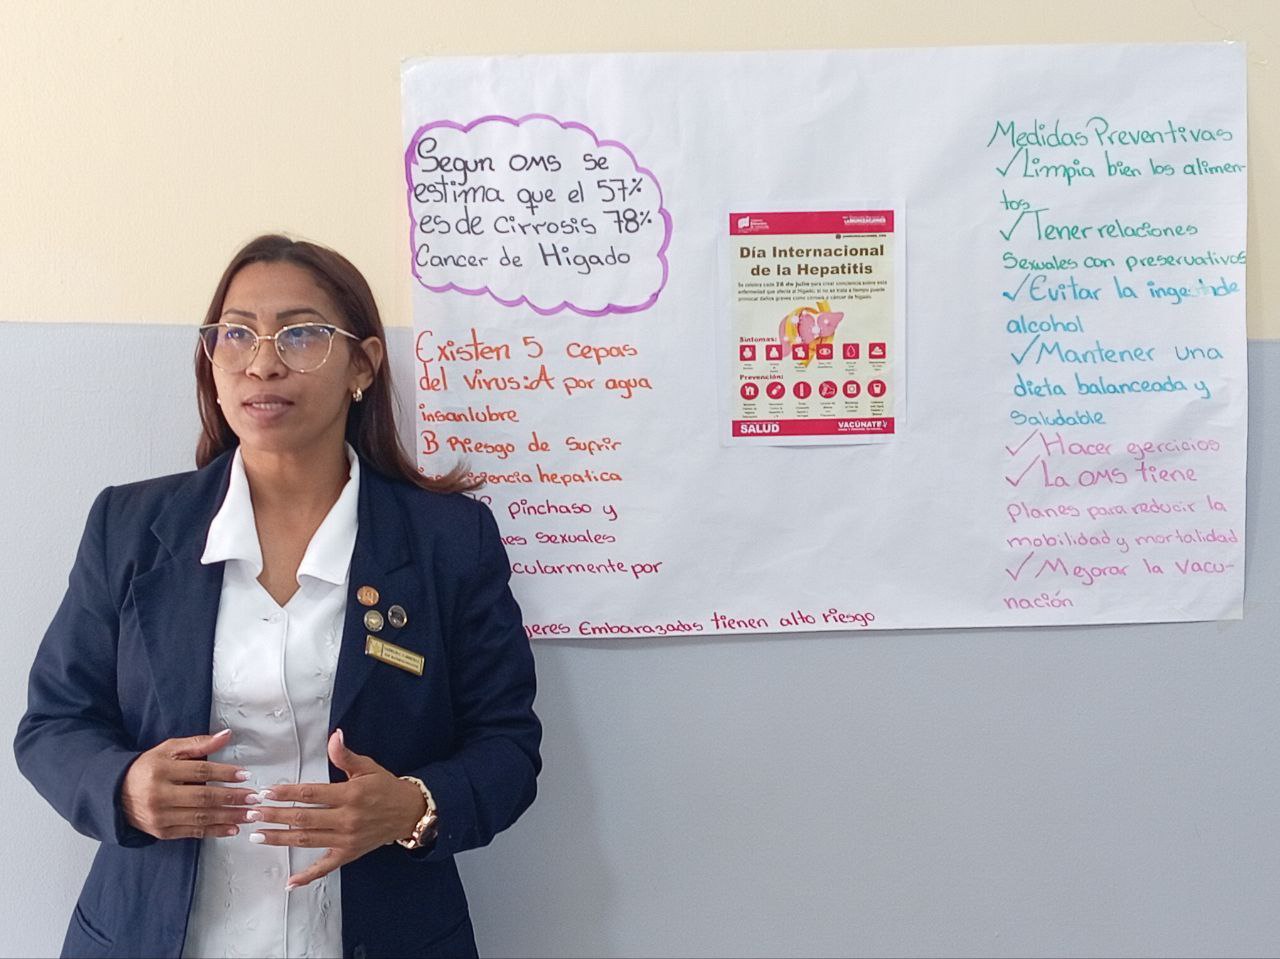 Segun OMS se
estima que el 57%
es de cirrosis 78%
Cancer de Higado
Existen 5 cepas
del virus:A por agua
insanlubre
B Riesgo de Sufrir
hepatica
pinchaso y
sexuales
por
Embarazadas tienen alto riesgo
Día Internacional
de la Hepatitis
Se celebra cada 28 de julio para crear conciencia sobre esta
enfermedad que afecta al hígado, si no se trata a tiempo puede
provocar daños graves como cirrosis o cáncer de hígado.
Síntomas:
Prevención:
SALUD
VACÚNATE
Medidas Preventivas
✓Limpia bien los alimen-
tos
✓Tener relaciones
Sexuales con preservativos
✓Evitar la ingesta de
alcohol
✓Mantener una
dieta balanceada y
Saludable
✓Hacer ejercicios
✓La OMS tiene
planes para reducir la
mobilidad y mortalidad
✓Mejorar la vacu-
nación